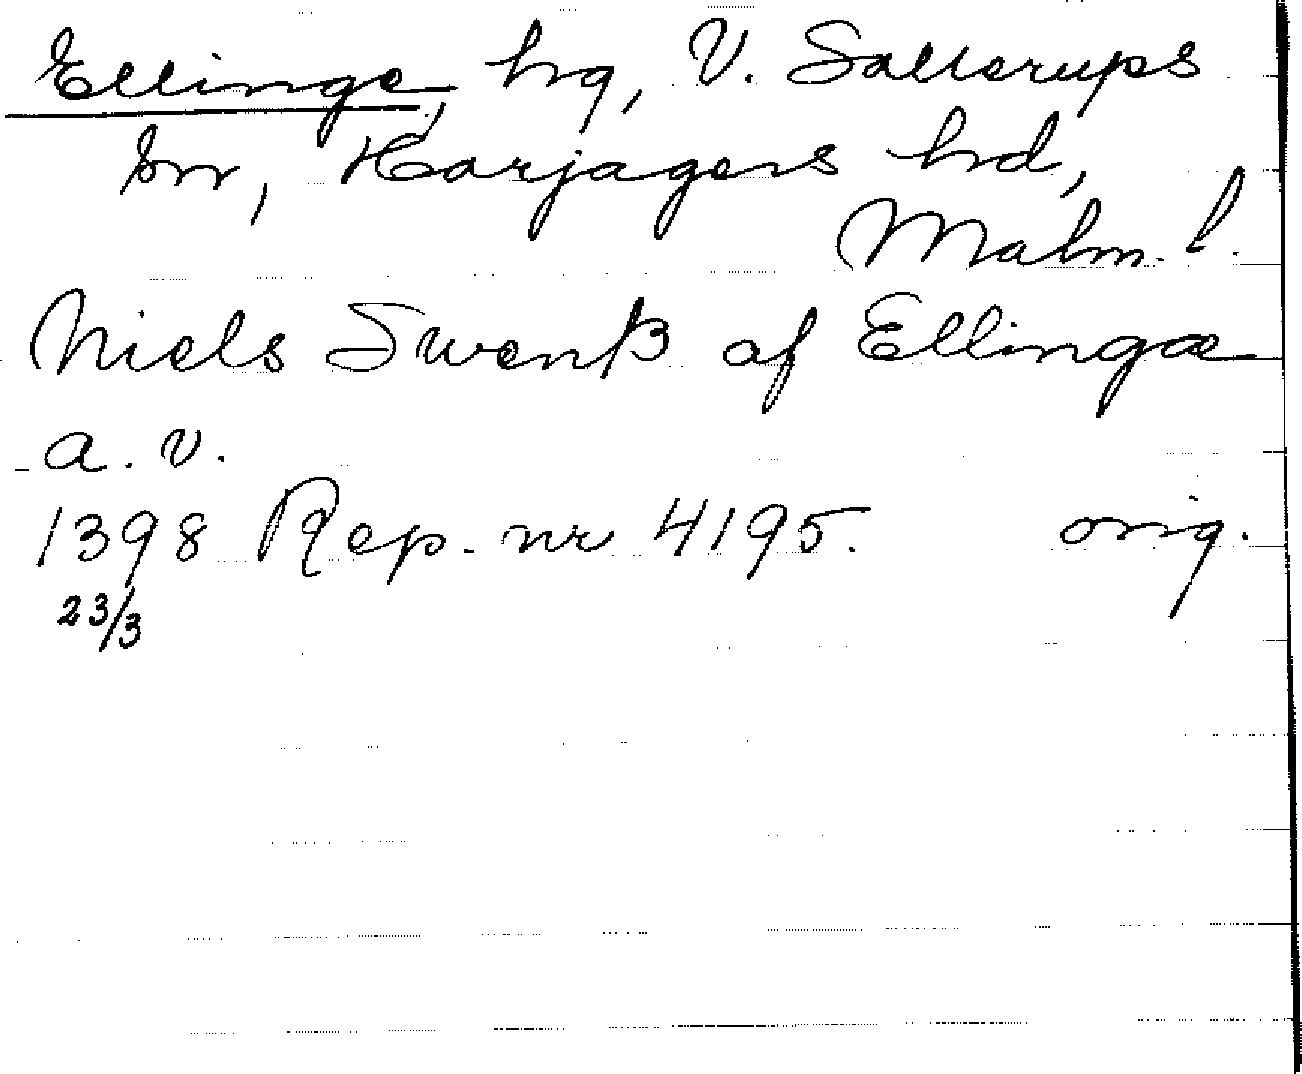 Ellinge, hg, V. Sallerups
sn, Harjagers hd,
Malm. l.
Niels Swenß af Ellingæ
a. v.
1398 Rep. nr 4195. orig.
23/3